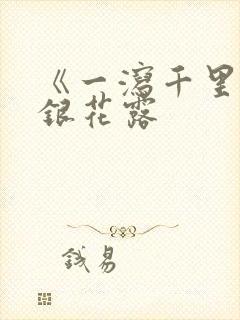 《一瀉千里
銀花露
錢易